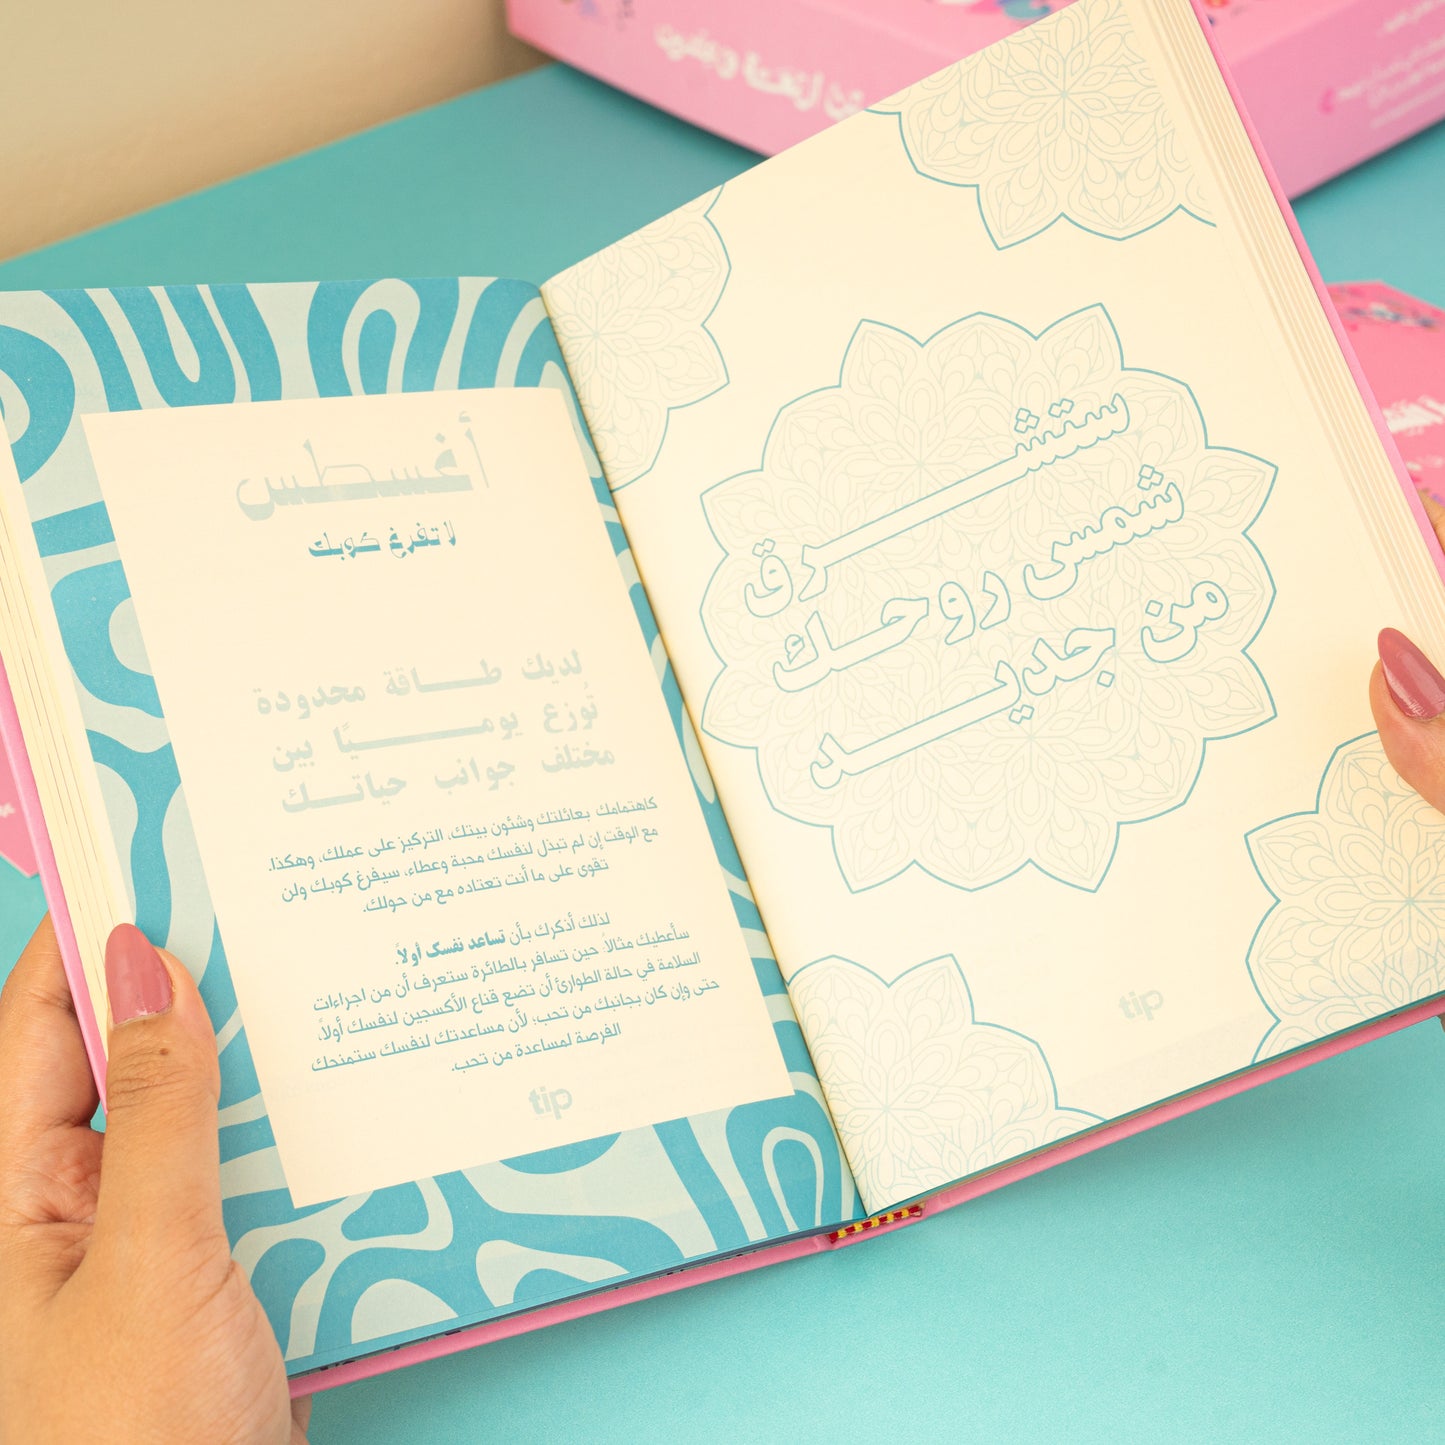 أغسطس
لا تفرغ كوبك
لديك طاقة محدودة
تُوزع يوميًا بين
مختلف جوانب حياتك
كاهتمامك بعائلتك وشئون بيتك، التركيز على عملك، وهكذا.
مع الوقت إن لم تبذل لنفسك محبة وعطاء، سيفرغ كوبك ولن
تقوى على ما أنت تعتاده مع من حولك.
لذلك أذكرك بأن تساعد نفسك أولاً.
سأعطيك مثالاً: حين تسافر بالطائرة ستعرف أن من اجراءات
السلامة في حالة الطوارئ أن تضع قناع الأكسجين لنفسك أولاً،
حتى وإن كان بجانبك من تحب؛ لأن مساعدتك لنفسك ستمنحك
الفرصة لمساعدة من تحب.
tip
ستشرق
شمس روحك
من جديد
tip